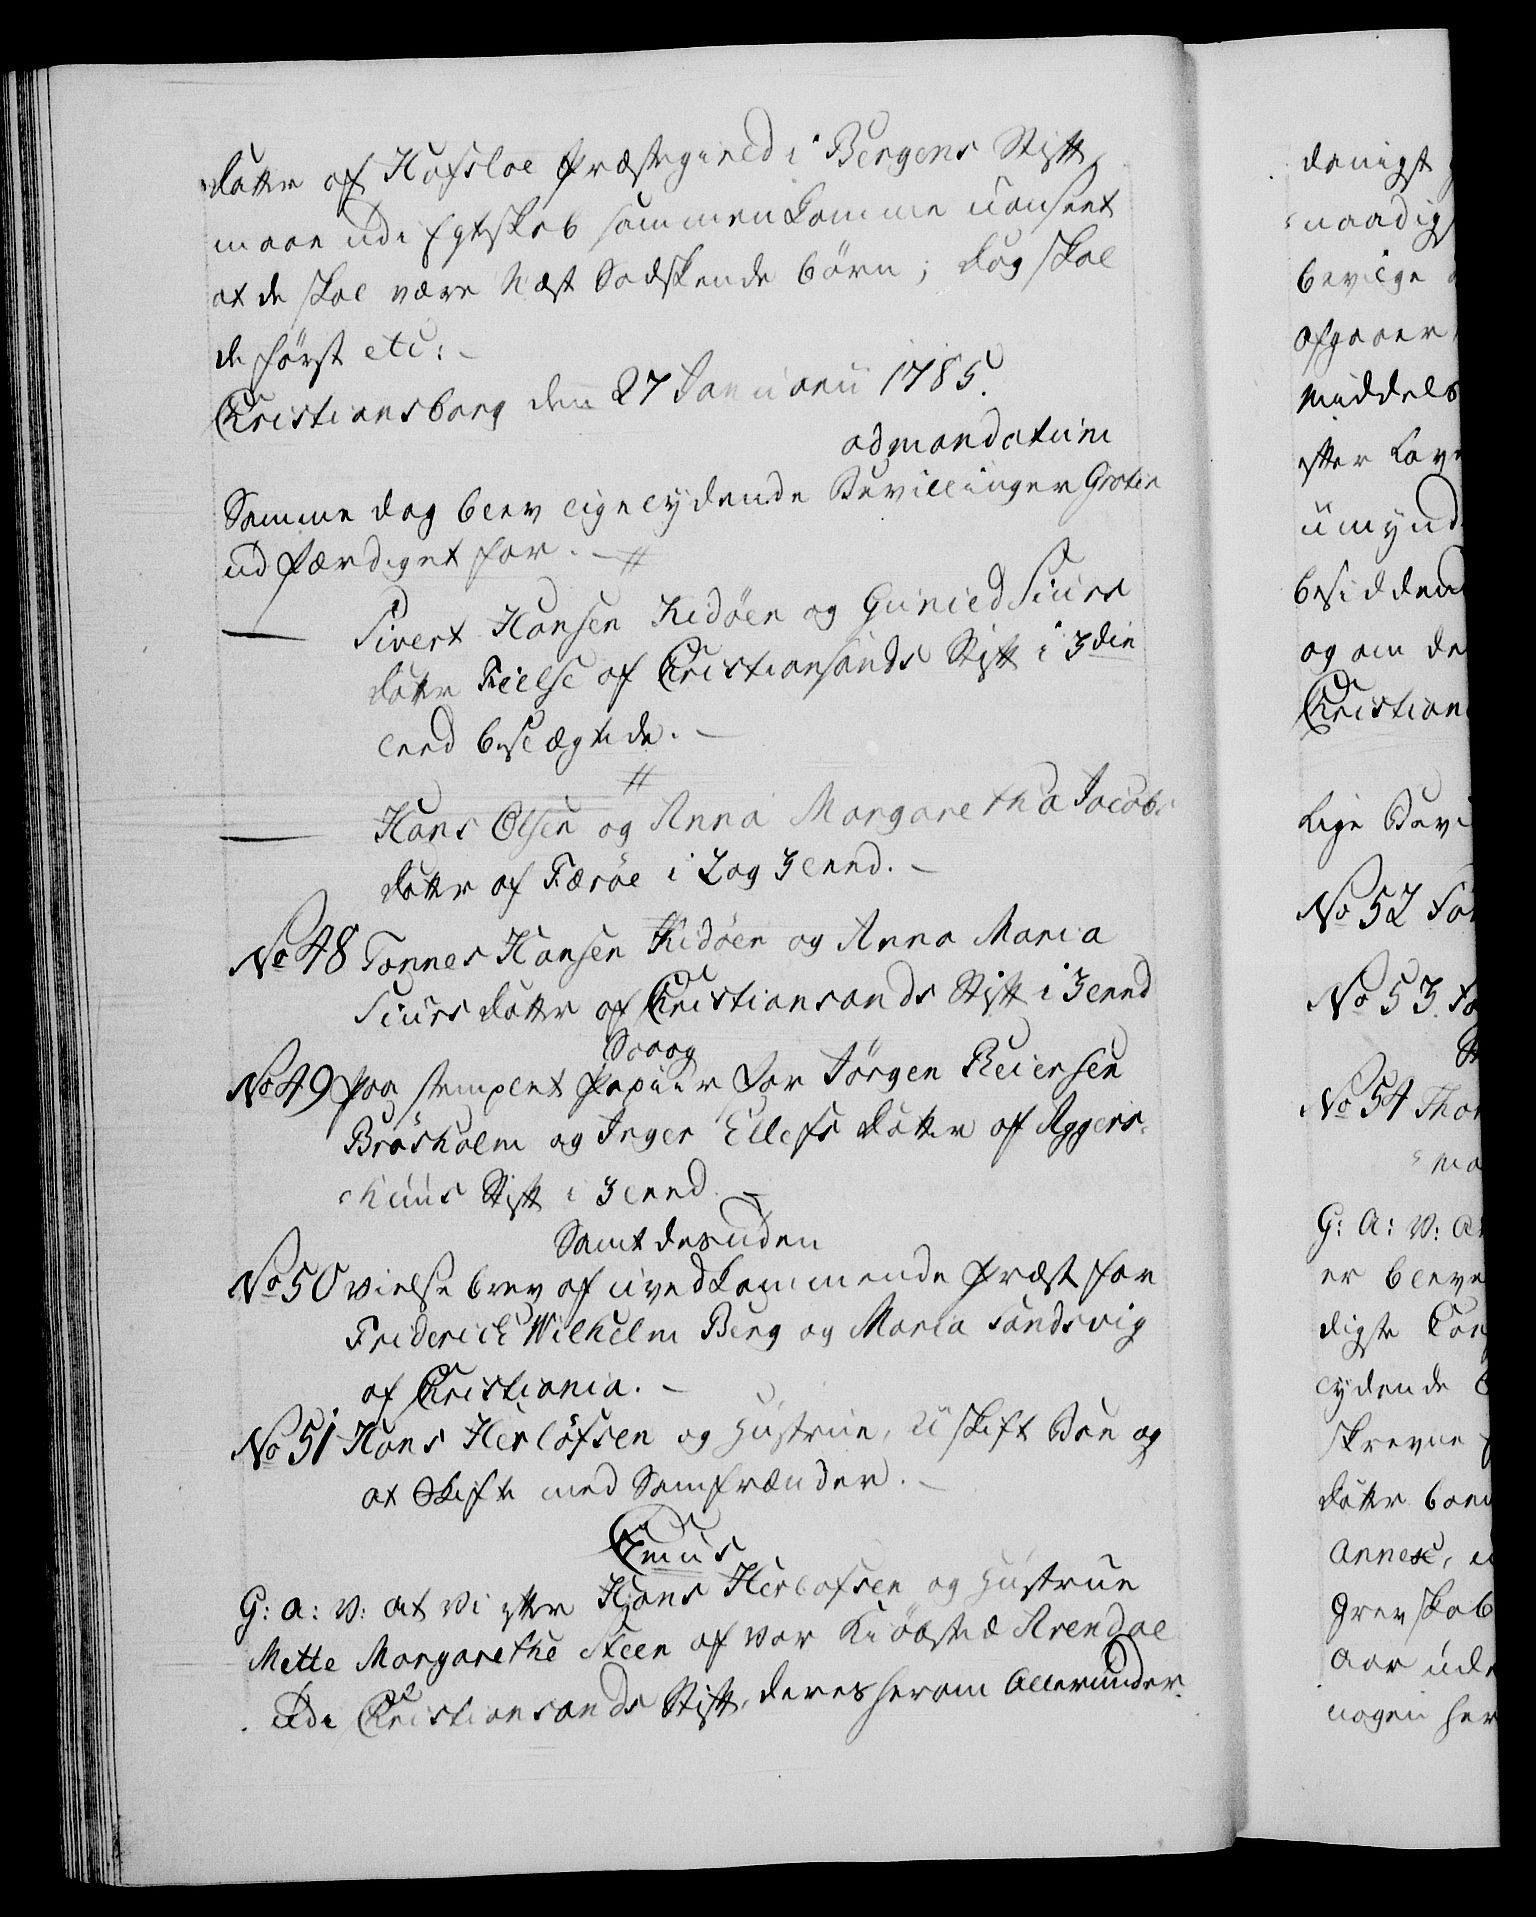 datter af Hafsloe Præstegield i Bergens Stift,
maae udi Egteskab sammenkomme uanseet
at de skal være Næst Sødskende børn; dog skal
de først etc:
Christiansborg den 27 Januarii 1785.
ad mandatum
Samme dag blev ligelydende Bevillinger Gratis
udfærdiget for.
Sivert Hansen Hidøen og Gunild Siurs
datter Fielse af Christiansands Stift i 3die
leed beslægtede.
Hans Olsen og Anna Margaretha Jacobs
datter af Færøe i 2 og 3 leed.
No 48 Tønnes Hansen Hidøen og Anna Maria
Siurs datter af Christiansands Stift i 3 leed
Saaog
No 49 paa stemplet Papiir for Jørgen Reiersen
Brøsholm og Inger Ellefs datter af Aggers-
huus Stift i 3 leed.
Samt desuden
No 50 vielse brev af uvedkommende Præst for
Friderich Wilhelm Berg og Maria Sandsvig
af Christiania.
No 51 Hans Herløfsen og Hustrue, Uskift Boe og
at Skifte med Samfrænder.
G: A: V: at Vi efter Hans Herlofsen og Hustrue
Mette Margarethe Steen af vor Kiøbsted Arendal
udi Christiansands Stift, deres herom Allerunder-
denigst
naadigst
bevilge
afgaaer
Middels
efter Lov
umynd
besidden
og om de
Christian
Lige Bevi
No 52 for
No 53. for
No 54 Thom
G: A: V: at
er bleve
digste
lydende
skrevne
datter
Annex,
Grevskab
Aar ude
nogen her